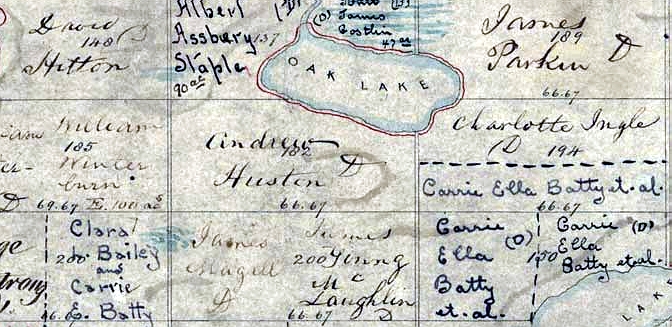 David
148
Hilton
Albert (D)
Assbury 137
Staples
90 ac
(D) James
Costlin
47 ac
OAK LAKE
James
189
Parkin D
66.67
William
185
Winter
burn
D 69.67 E. 100 acs
Andrew
182
Huston D
66.67
Charlotte Ingle
D 194
Carrie Ella Batty et. al.
66.67
Clara
200 Bailey
and
Carrie
E. Batty
James
Magill
D
James
200 Young
Mc
Laughlin
66.67 D
Carrie
Ella (D)
Batty
et. al.
Carrie (D)
Ella
150 Batty et al.
LAK